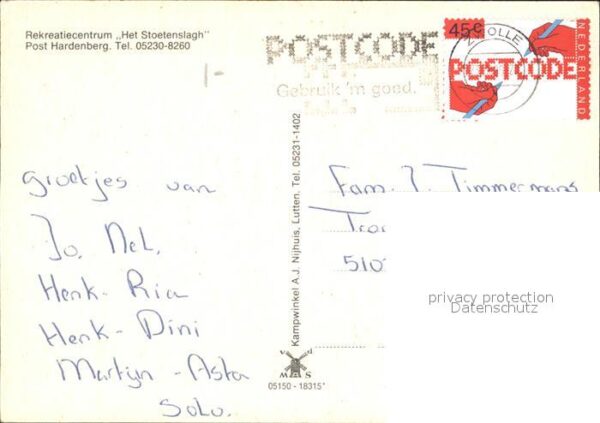 Rekreatiecentrum „Het Stoetenslagh"
Post Hardenberg. Tel. 05230-8260
1-
POSTCODE
Gebruik 'm goed.
ZWOLLE
45c
POSTCODE
NEDERLAND
Groetjes van
Jo, Nel,
Henk - Ria
Henk - Dini
Martijn - Asta
Kampwinkel A.J. Nijhuis, Lutten, Tel. 05231-1402
05150 - 18315
Fam. J. Timmermans
510
privacy protection
Datenschutz